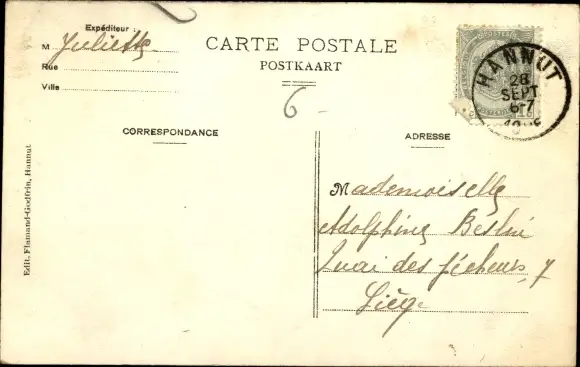 Expéditeur :
M Juliette
Rue
Ville
CARTE POSTALE
POSTKAART
HANNUT
28
SEPT
6-7
6-
CORRESPONDANCE
ADRESSE
Mademoiselle
Adolphine
Quai des pêcheurs, 7
Liège
Edit. Flamand-Godfrin, Hannut